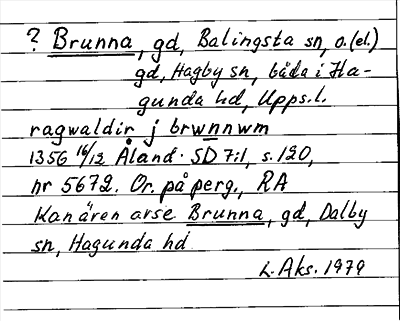 ? Brunna, gd, Balingsta sn, o. (el.)
gd, Hagby sn, båda i Ha-
gunda hd, Upps.l.
ragwaldir j brwnnwm
1356 16/12 Åland. SD 7:1, s. 120,
nr 5672. Or. på perg., RA
Kan även avse Brunna, gd, Dalby
sn, Hagunda hd
L. Aks. 1979